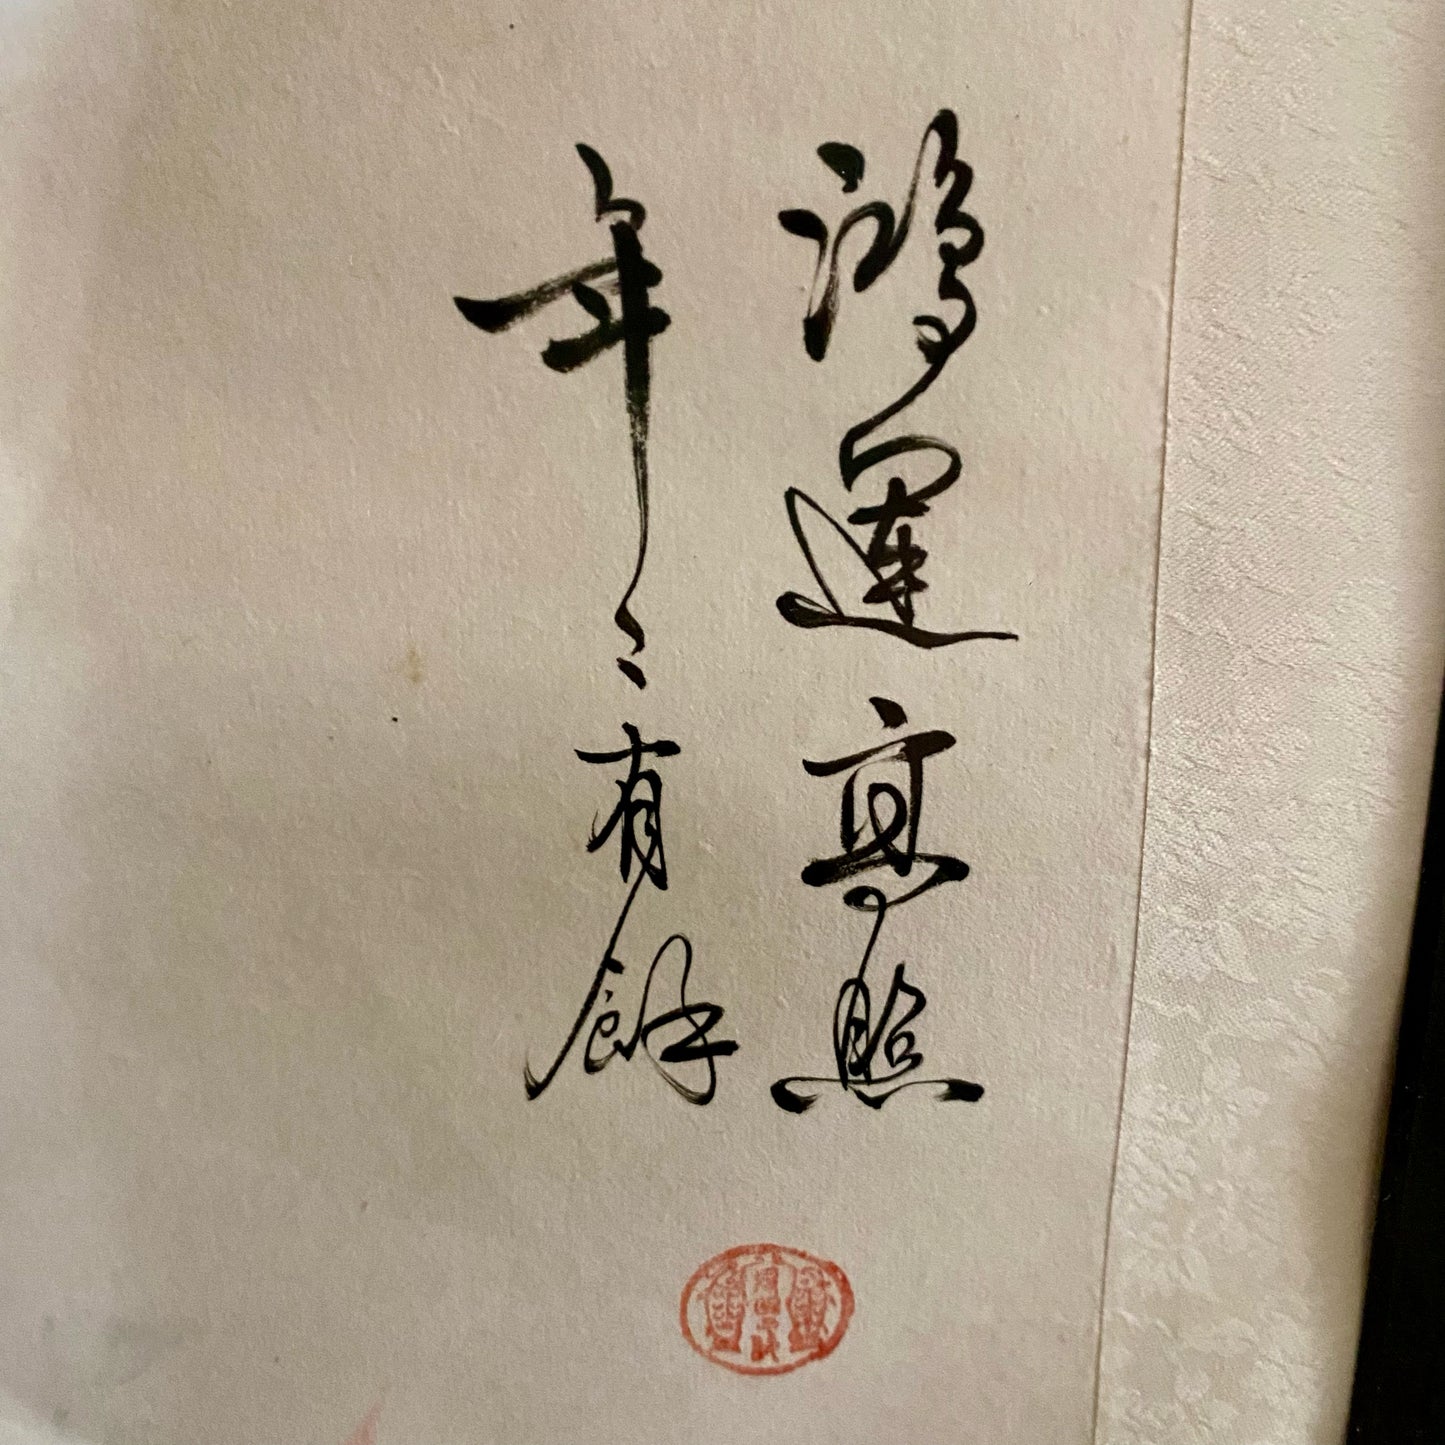 鴻運高照
年々有餘